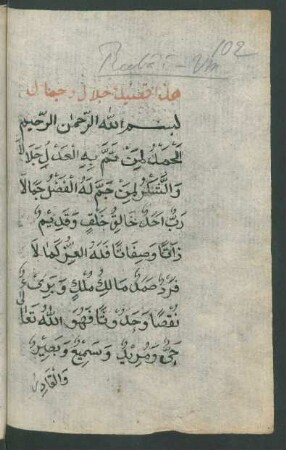 102
هذا قصيدة جلال وجمال
بسم الله الرحمن الرحيم
الحمد لمن تم به العدل جلالا
والشكر لمن جم له الفضل جمالا
رب احد خالق خلق وقديم
ذاتا وصفاتا فله العز كمالا
فرد صمد مالك ملك وبرئ
نقصا وحدوثا فهو الله تعالى
حي ومريد وسميع وبصير
والقادر